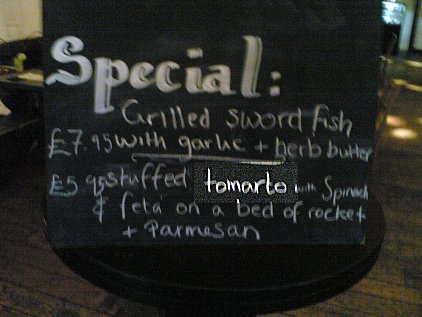 Special:
Grilled sword fish
£7.95 with garlic + herb butter
£5.95 stuffed tomarto with Spinach
& feta on a bed of rocket
+ Parmesan